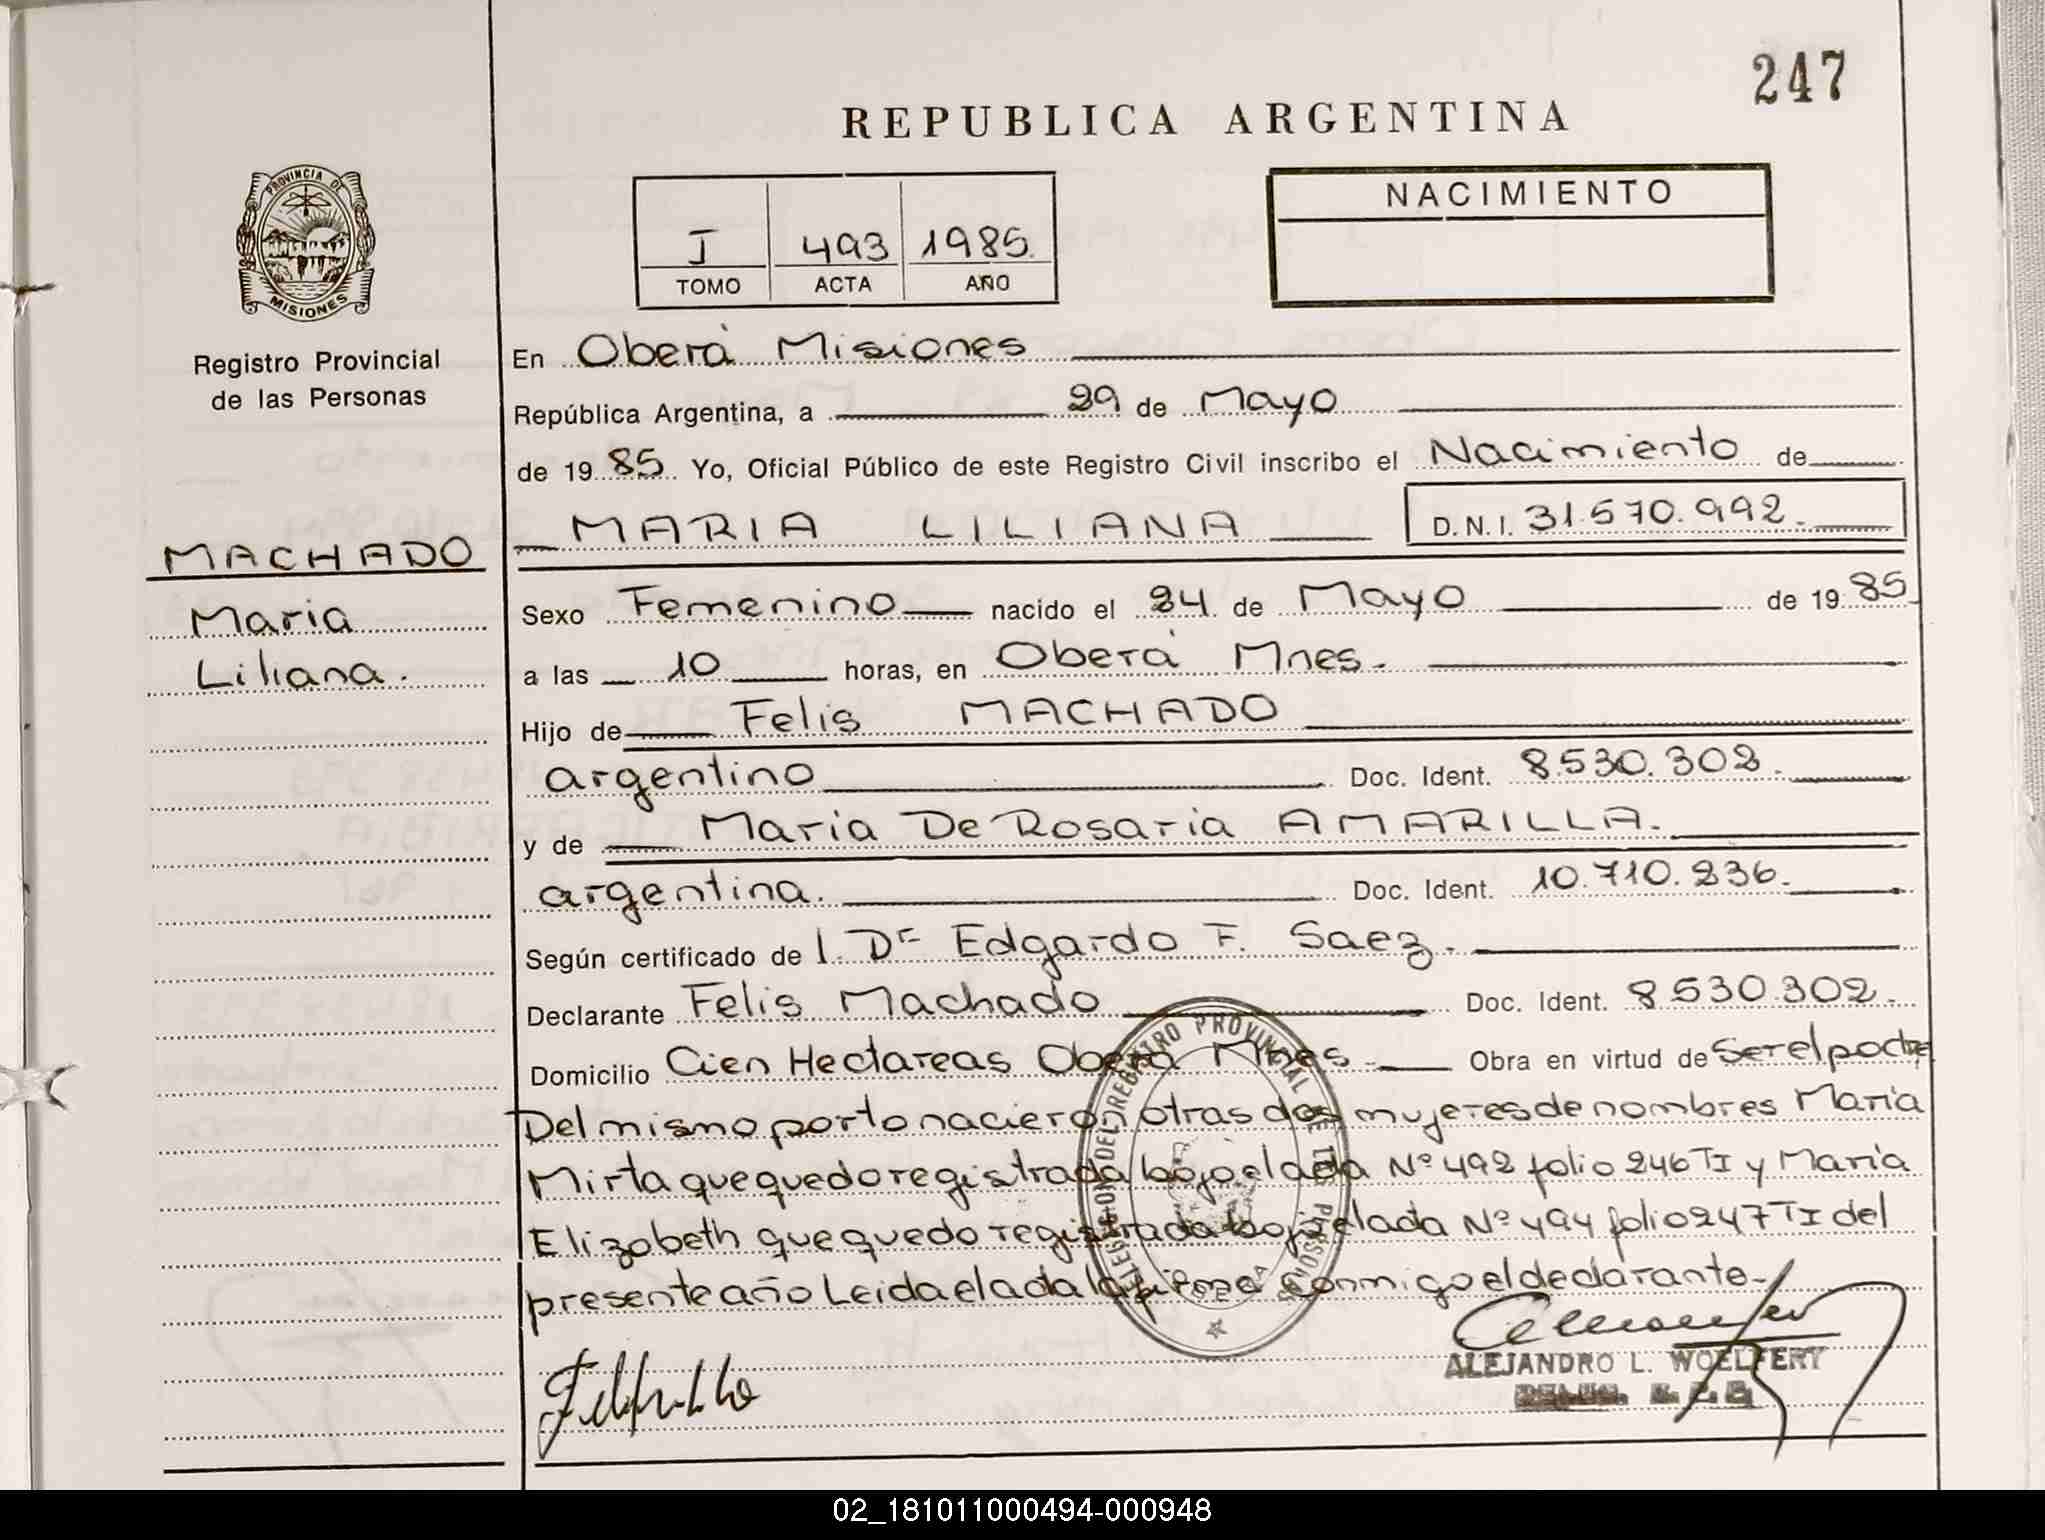 247
REPUBLICA ARGENTINA
PROVINCIA DE
MISIONES
Registro Provincial
de las Personas
I 493 1985
TOMO ACTA AÑO
NACIMIENTO
En Oberá Misiones
República Argentina, a 29 de Mayo
de 19 85 Yo, Oficial Público de este Registro Civil inscribo el Nacimiento de
MARIA LILIANA D.N.I. 31.570.992.
MACHADO
Maria
Liliana.
Sexo Femenino nacido el 24 de Mayo de 19 85
a las 10 horas, en Oberá Mnes.
Hijo de Felis MACHADO
argentino Doc. Ident. 8.530.302.
y de Maria De Rosaria AMARILLA.
argentina. Doc. Ident. 10.710.236.
Según certificado de l. Dr Edgardo F. Saez.
Declarante Felis Machado Doc. Ident. 8.530.302.
Domicilio Cien Hectareas Oberá Mnes. Obra en virtud de ser el padre
Del mismo parto nacieron otras dos mujeres de nombres Maria
Mirta que quedo registrada bajo el acta Nº 492 folio 246 TI y Maria
Elizabeth que quedo registrada bajo el acta Nº 494 folio 247 TI del
presente año Leida el acta la firma conmigo el declarante.
DELEGACION DEL REGISTRO PROVINCIAL DE LAS PERSONAS
ALEJANDRO L. WOELFERT
02_181011000494-000948